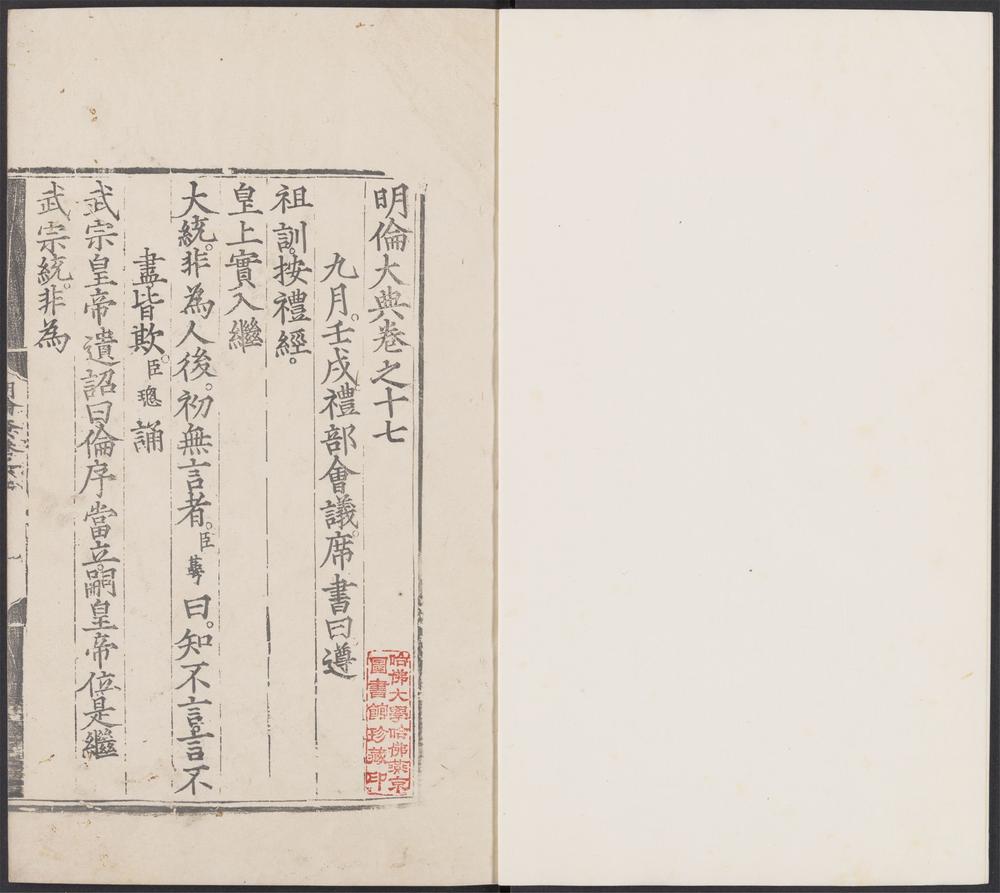 明倫大典卷之十七
九月。壬戌。禮部會議。席書曰遵
祖訓。按禮經。
皇上實入繼
大統。非為人後。初無言者。臣蕚曰。知不言。言不
盡。皆欺。臣璁誦
武宗皇帝遺詔曰倫序當立。嗣皇帝位是繼
武宗統。非為
哈佛大學哈佛燕京
圖書館珍藏印